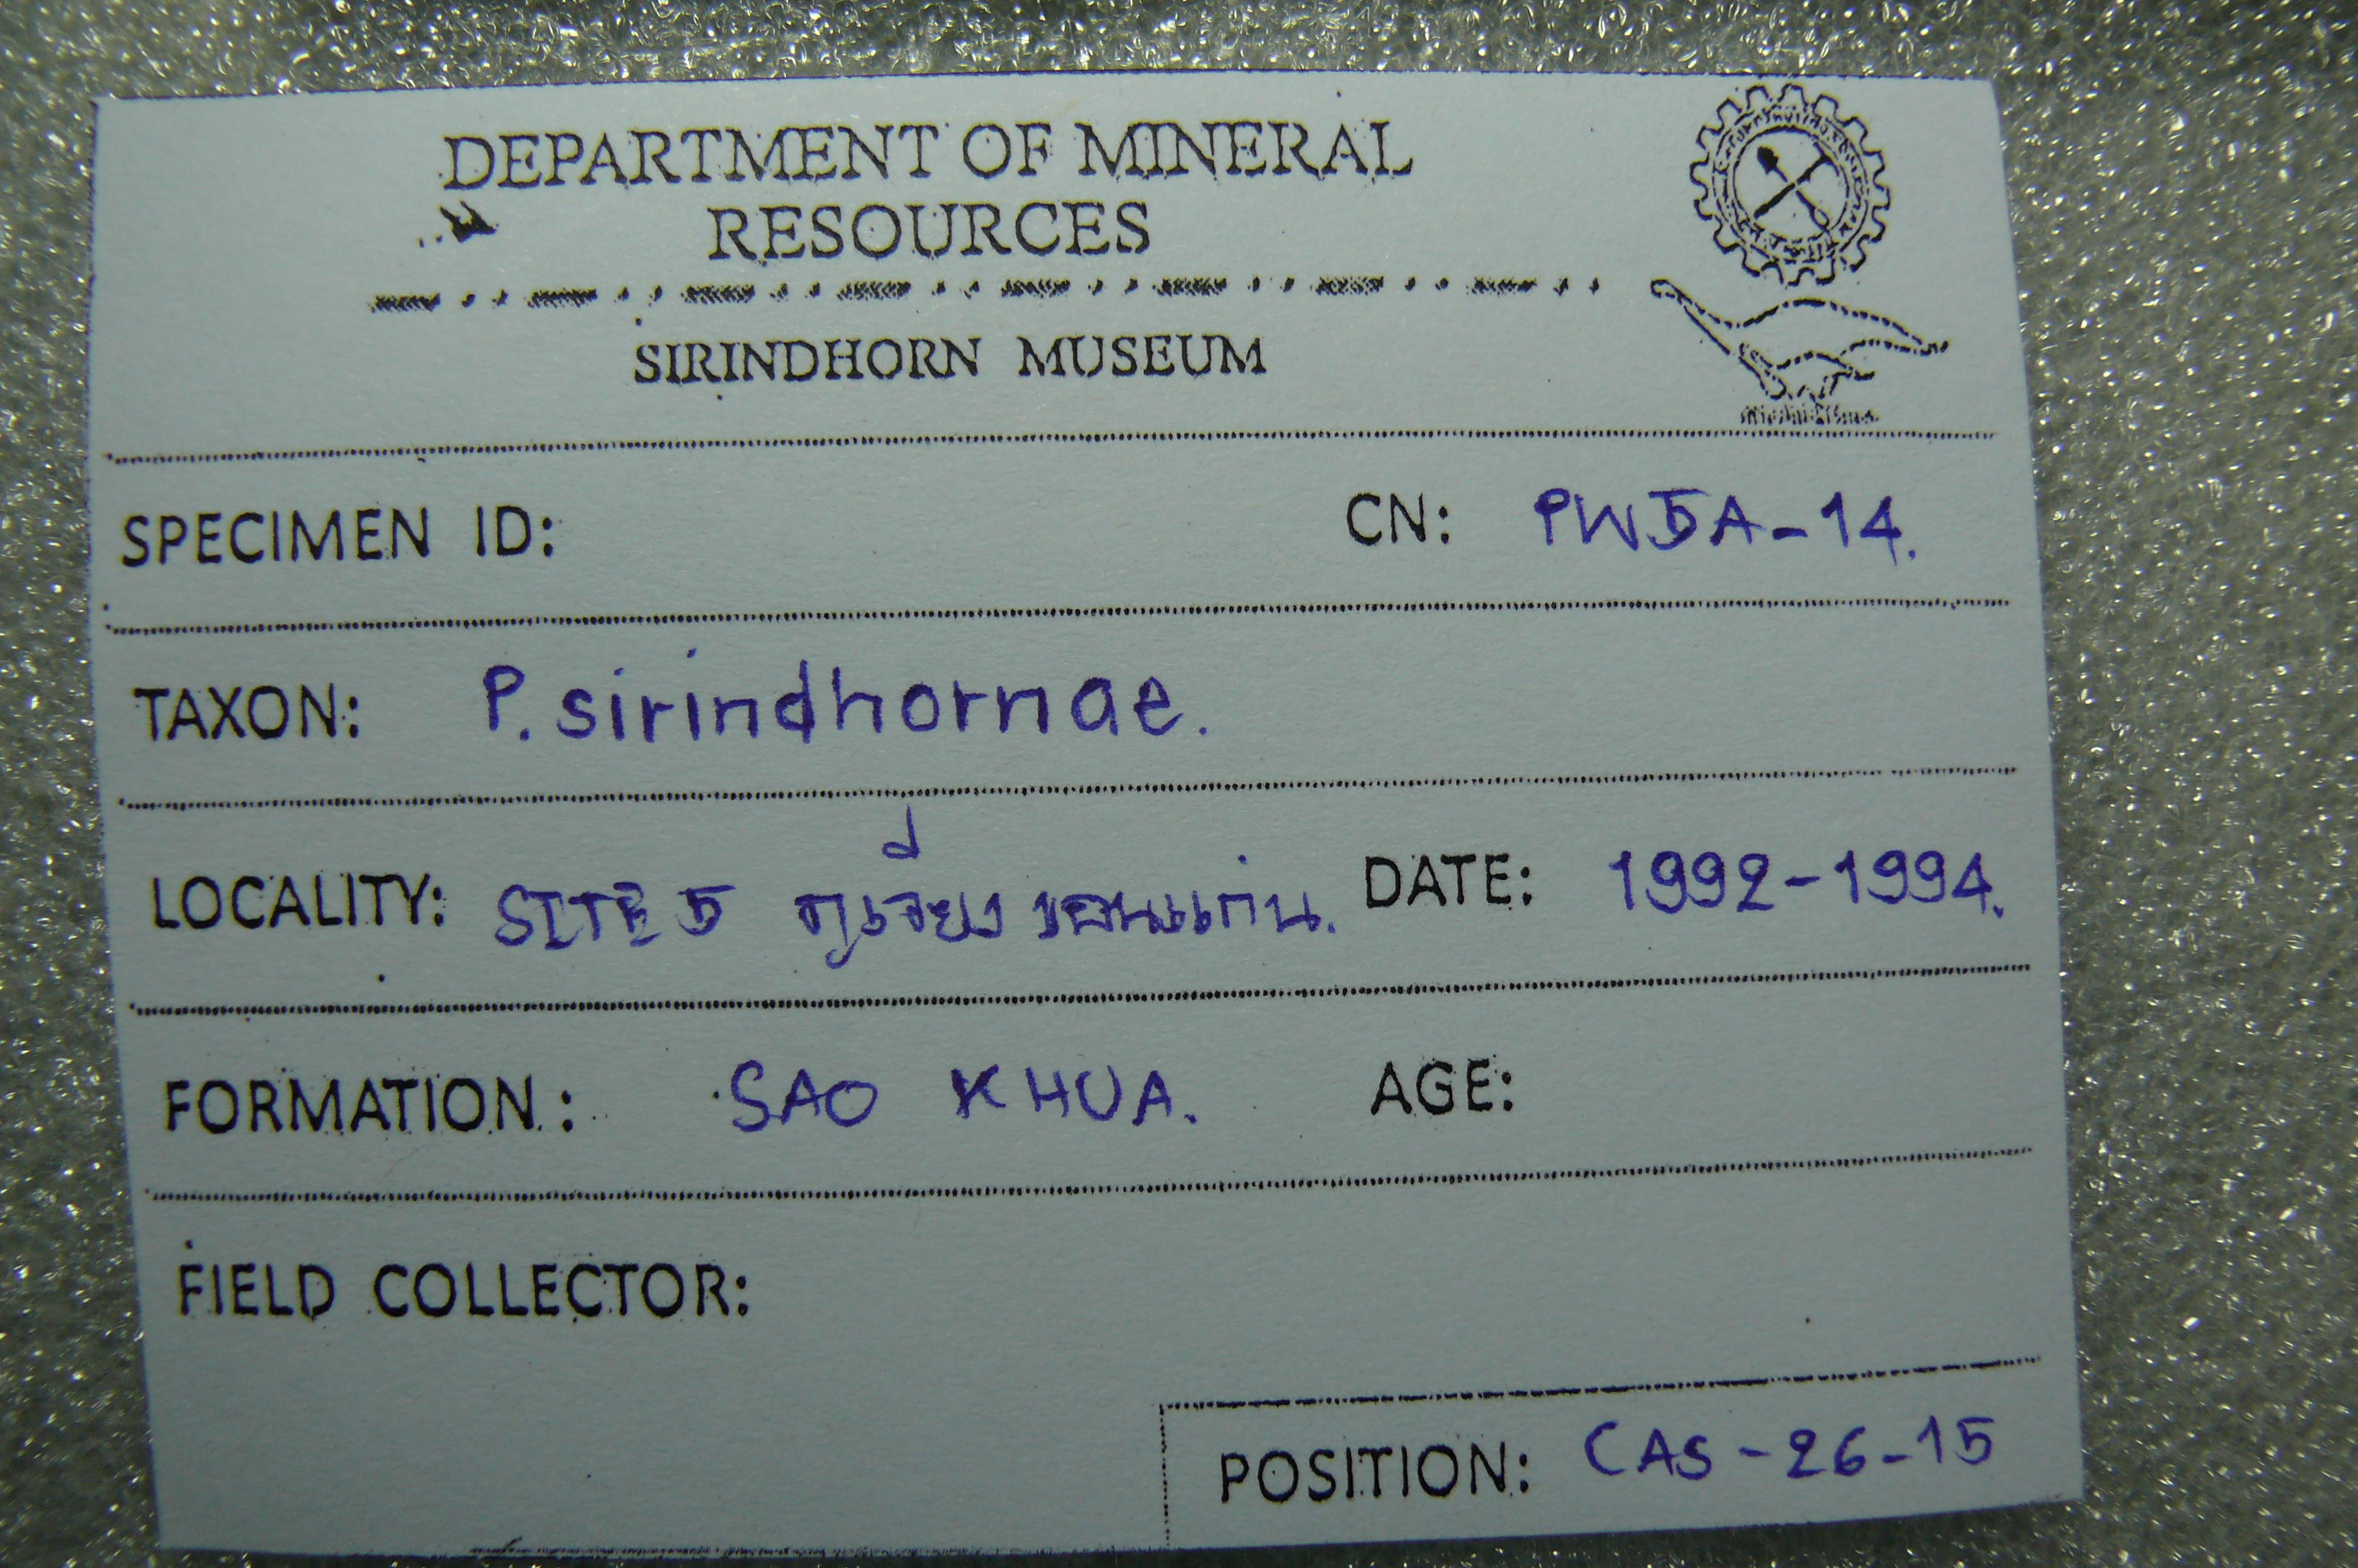 DEPARTMENT OF MINERAL
RESOURCES
SIRINDHORN MUSEUM
SPECIMEN ID: CN: PW5A-14.
TAXON: P. sirindhornae.
LOCALITY: SITE 5 ภูเวียง ขอนแก่น. DATE: 1992-1994.
FORMATION: SAO KHUA. AGE:
FIELD COLLECTOR:
POSITION: CAS-26-15